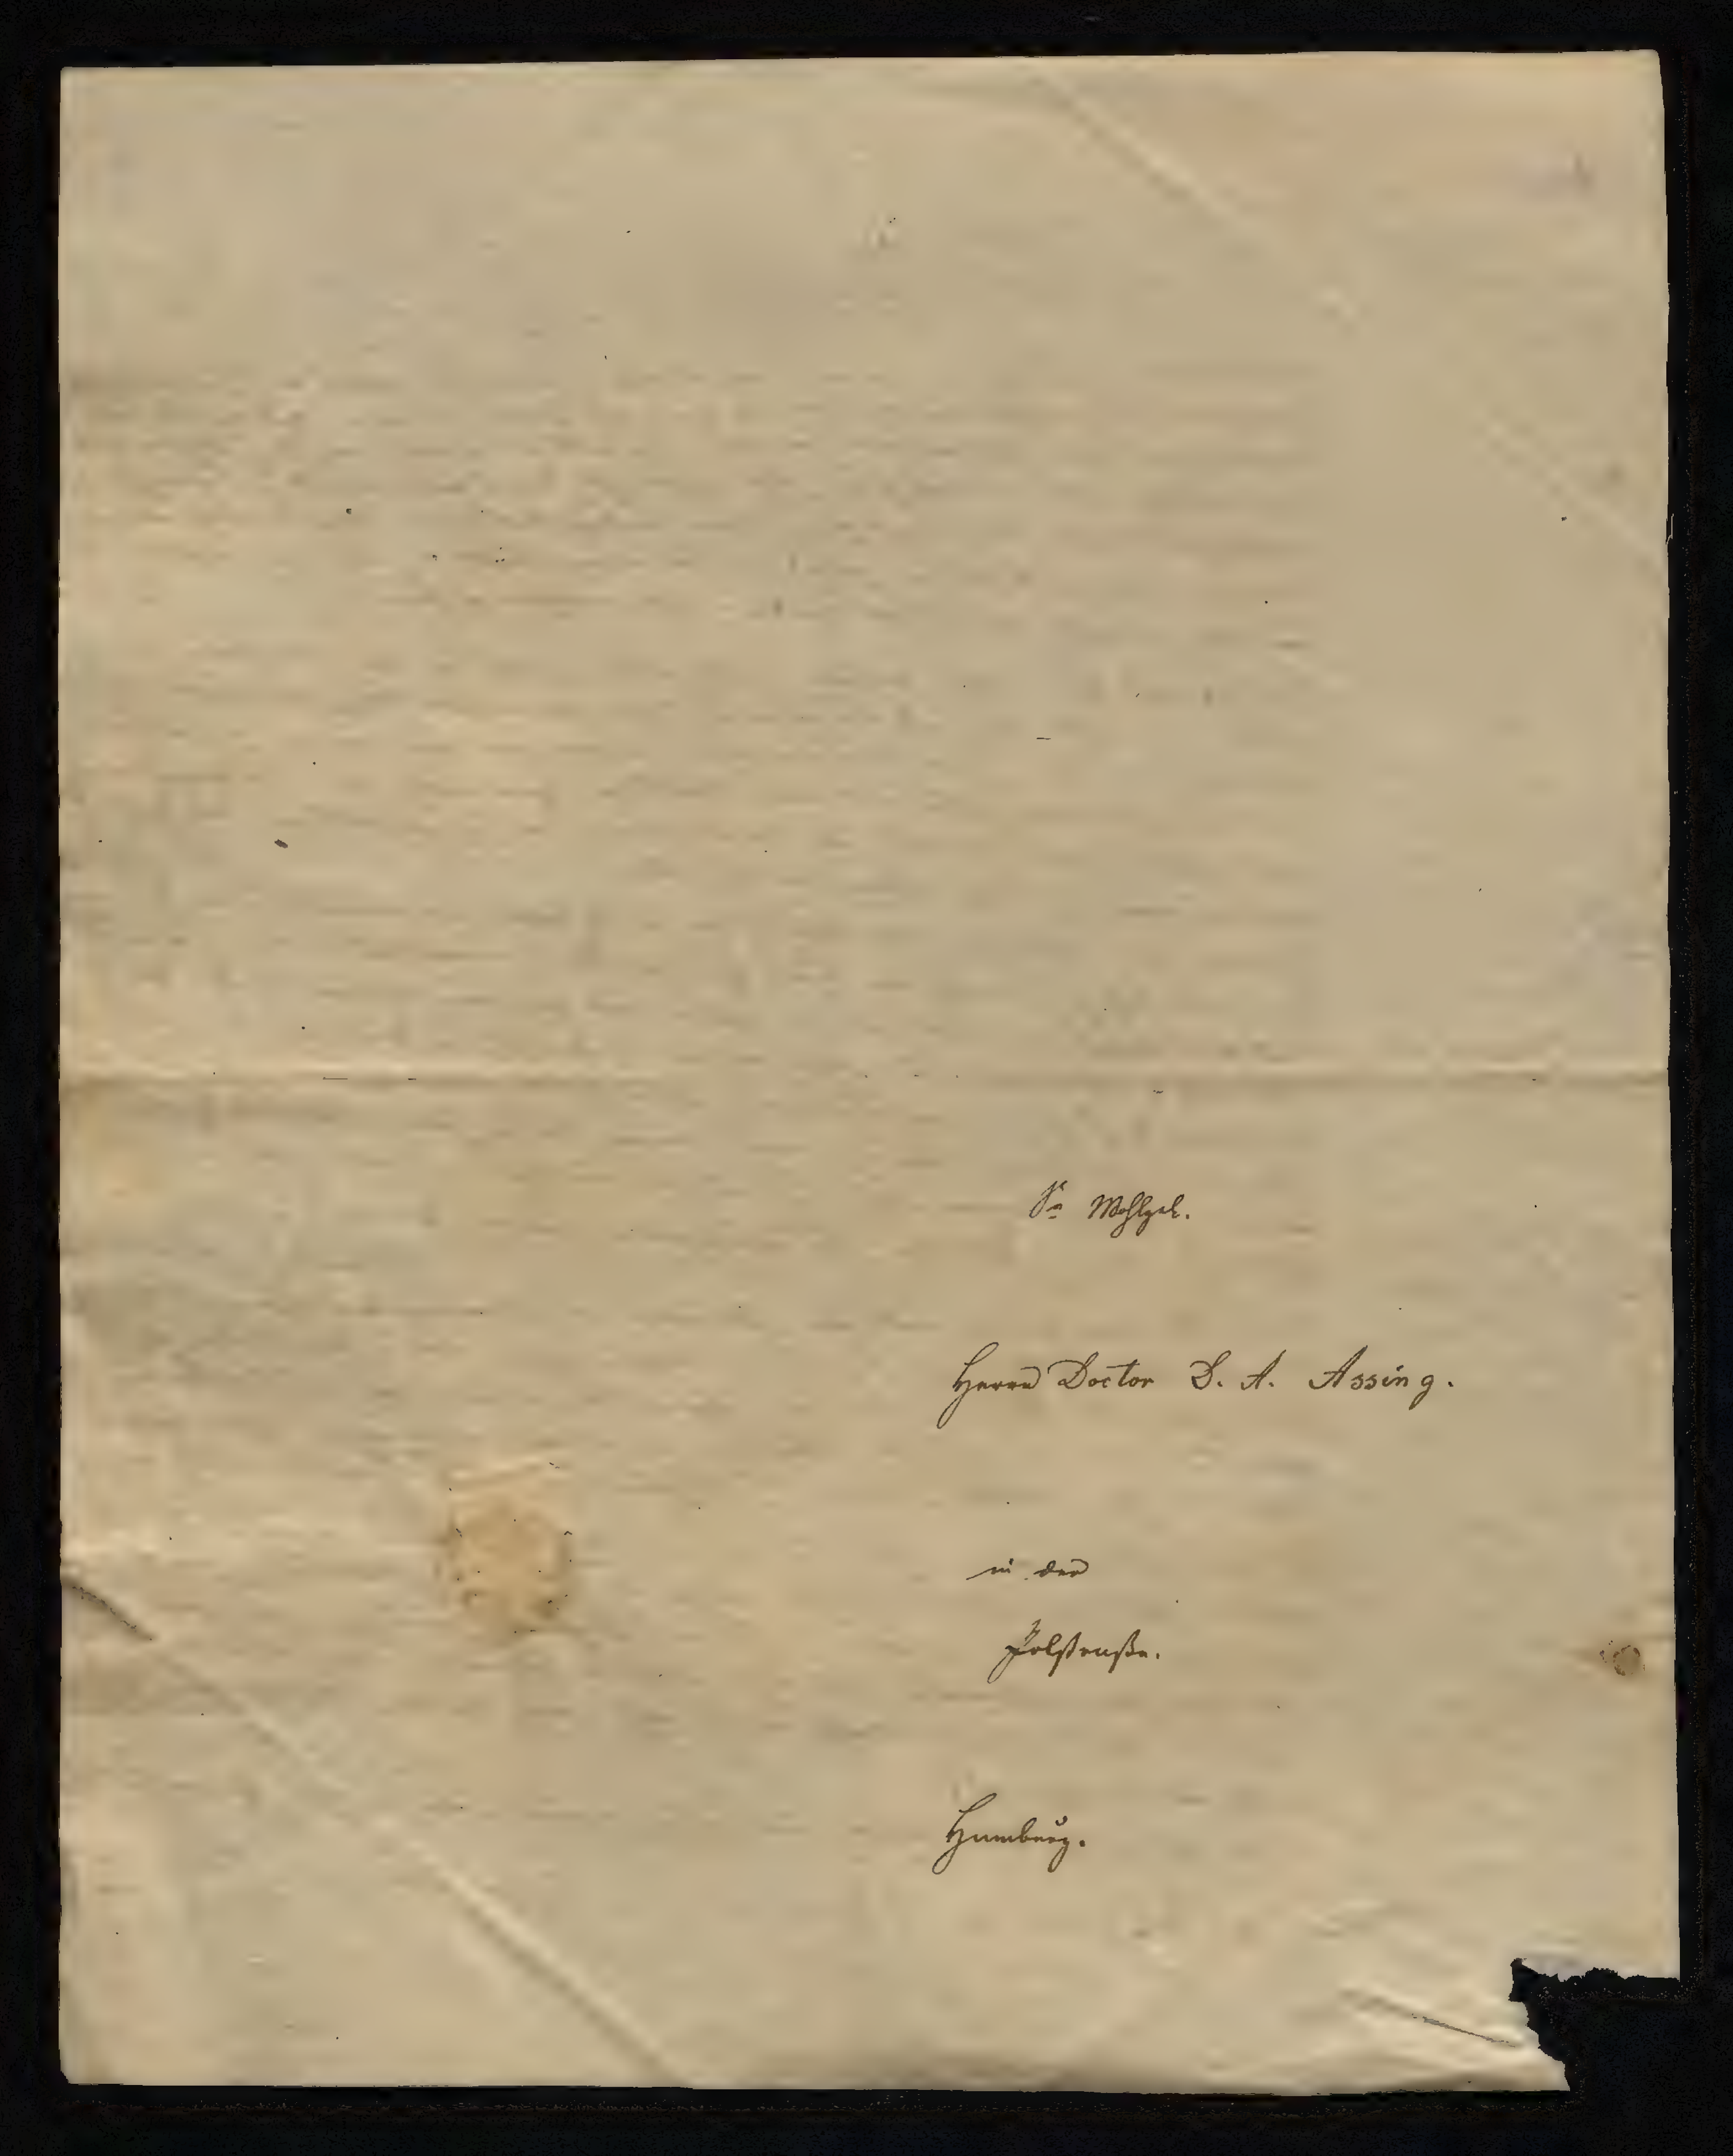 Sr Wohlgeb.
Herrn Doctor D. A. Assing.
in der
Poolstraße.
Hamburg.